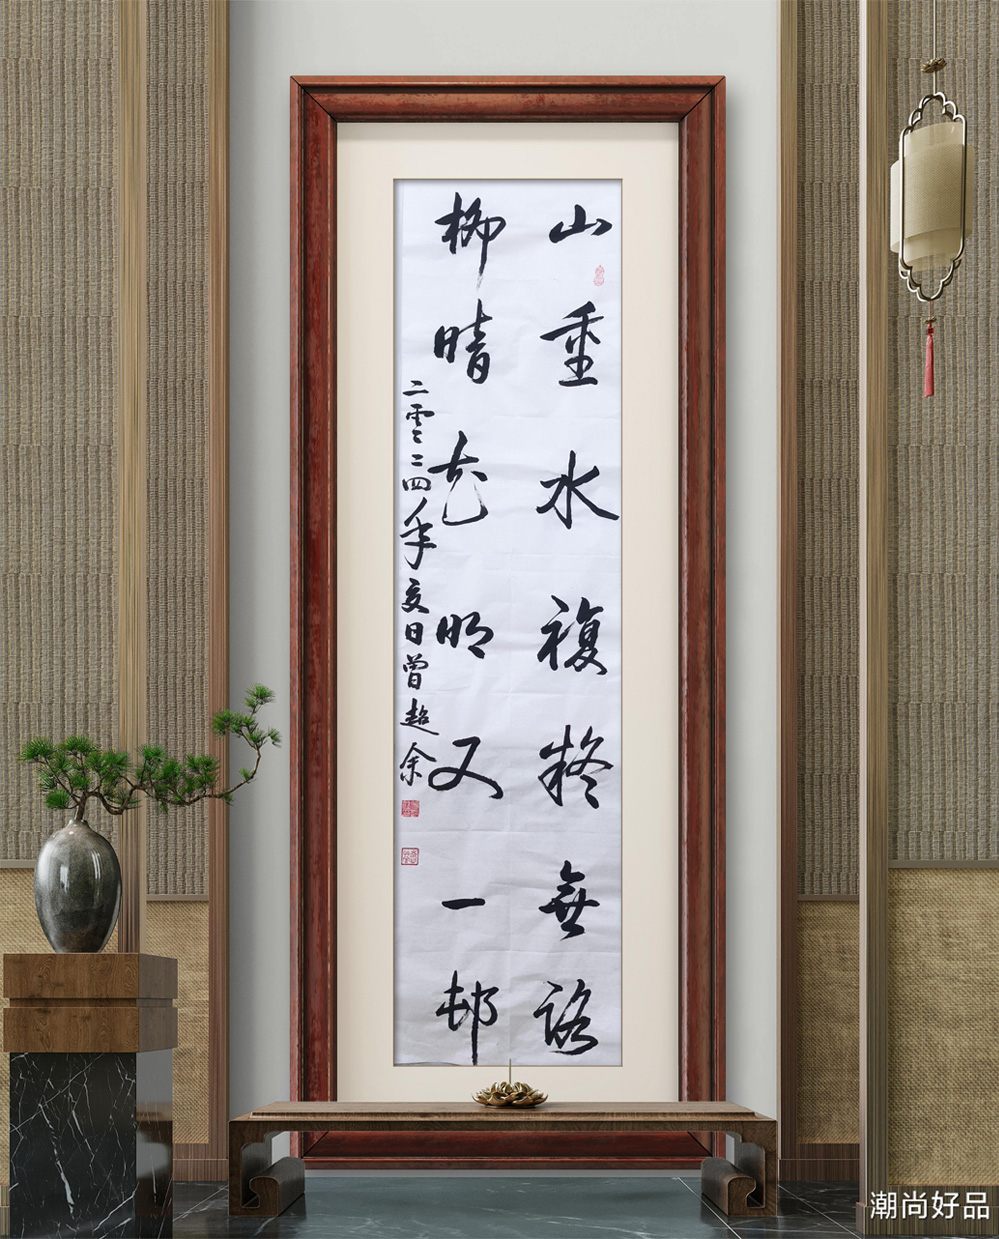 山重水複疑無路
柳暗花明又一邨
二零二四年夏日曾超余
潮尚好品